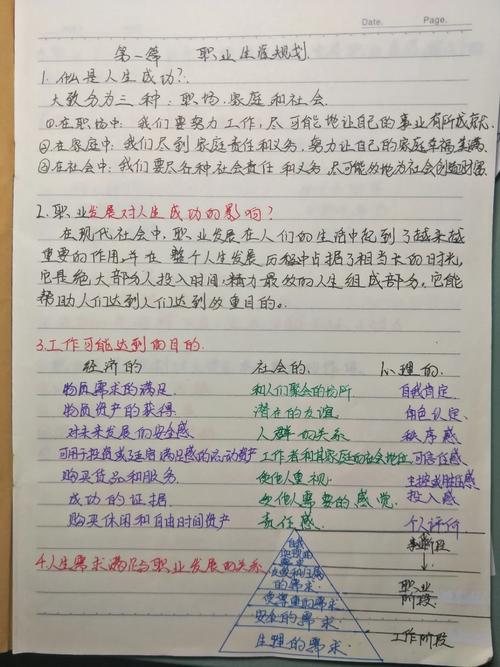 Date. Page.
第一篇 职业生涯规划.
1. 什么是人生成功?
大致分为三种：职场.家庭和社会.
①在职场中：我们要努力工作,尽可能地让自己的事业有所成就.
②在家庭中：我们尽到家庭责任和义务,努力让自己的家庭幸福美满.
③在社会中：我们要尽各种社会责任和义务,尽可能的地为社会创造财富.
2.职业发展对人生成功的影响？
在现代社会中,职业发展在人们的生活中起到了越来越
重要的作用,并在整个人生发展历程中占据了相当长的时光,
它是绝大部分人投入时间.精力最多的人生组成部分,它能
帮助人们达到人们达到多重目的。
3.工作可能达到的目的.
经济的 社会的. 心理的.
物质需求的满足. 和人们聚会的场所 自我肯定.
物质资产的获得. 潜在的友谊. 角色认定.
对未来发展的安全感 人群的关系 秩序感
可用于投资或了延缓满足感的流动资产 工作者和其家庭的社会地位 可信任感
购买货品和服务. 受他人重视. 主控或胜任感
成功的证据. 被他人需要的感觉. 投入感
购买休闲和自由时间资产 责任感. 个人评价
4.人生需求满足与职业发展的关系
自我
实现的
需求
友爱和归属
的需求.
受尊重的需求
安全的需求
生理的需求.
事业阶段
职业
阶段.
工作阶段